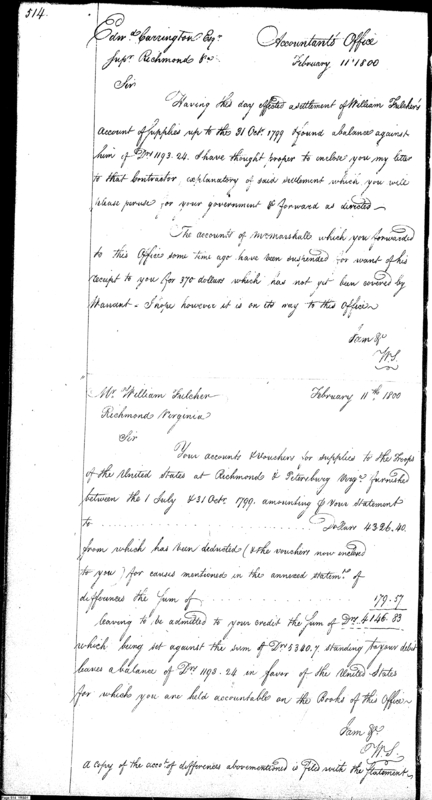 514.
Edwd. Carrington Esqr. Accountant's Office
Supr. Richmond Va. February 11th 1800
Sir
Having this day effected a settlement of William Fulcher's
account of supplies up to the 31 Octr. 1799 & found a balance against
him of Drs 1193.24. I have thought proper to enclose you my letter
to that Contractor explanatory of said settlement which you will
please peruse for your government & forward as directed.
The accounts of Mr. Marshall which you forwarded
to this Office some time ago have been suspended for want of his
receipt to you for 370 dollars which has not yet been covered by
Warrant - I hope however it is on its way to this Office
I am &c
W.S.
Mr. William Fulcher February 11th. 1800
Richmond Virginia
Sir
Your accounts & vouchers for supplies to the Troops
of the United States at Richmond & Petersburg Virga. furnished
between the 1 July & 31 Octr. 1799. amounting p your statement
to .......... Dollars 4326.40.
from which has been deducted (& the vouchers now enclosed
to you) for causes mentioned in the annexed statemt. of
differences the Sum of 179.57
leaving to be admitted to your credit the Sum of Drs. 4146.83
which being set against the sum of Drs 5340.7 standing to your debit
leaves a balance of Drs 1193.24 in favor of the United States
for which you are held accountable on the Books of this Office
I am &c
W.S.
A copy of the accot. of differences abovementioned is filed with the Statement